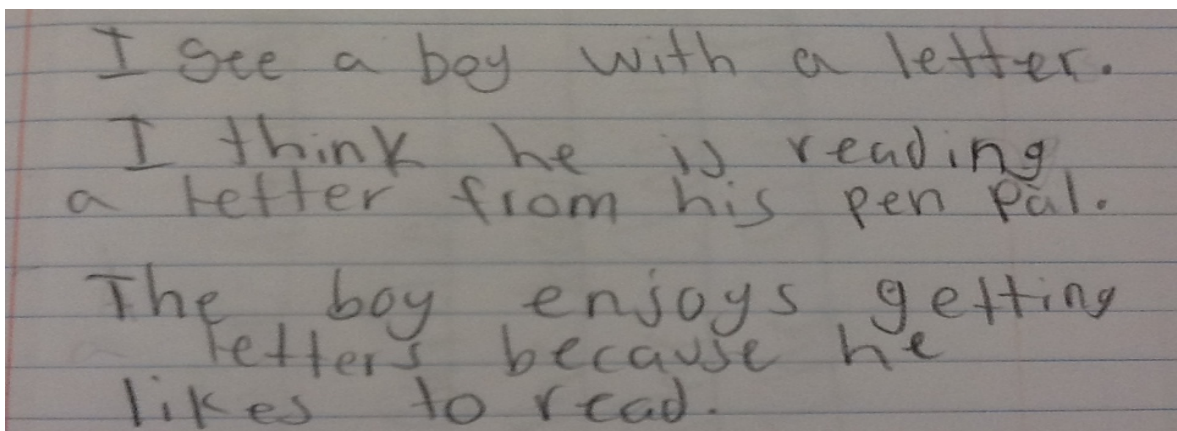 I see a boy with a letter.
I think he is reading
a letter from his pen pal.
The boy enjoys getting
letters because he
likes to read.